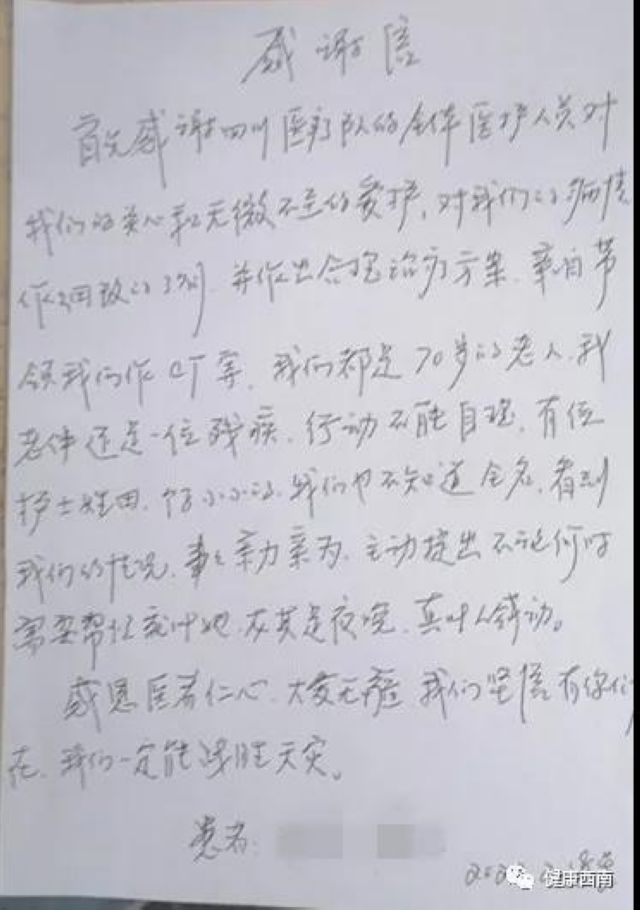 感谢信
首先感谢四川医疗队的全体医护人员对
我们的关心和无微不至的爱护,对我们的病情
作细致的 并作出合理治疗方案,亲自带
领我们作CT等,我们都是70岁的老人,我
老伴还是一位残疾,行动不能自理,有位
护士姓田,个子小小的,我们也不知道全名,看到
我们的情况,事事亲力亲为,主动提出不论何时
需要帮忙就叫她,尤其是夜晚,真叫人感动。
感恩医者仁心,大爱无疆,我们坚信有你们
在,我们一定能战胜天灾。
患者:
健康西南